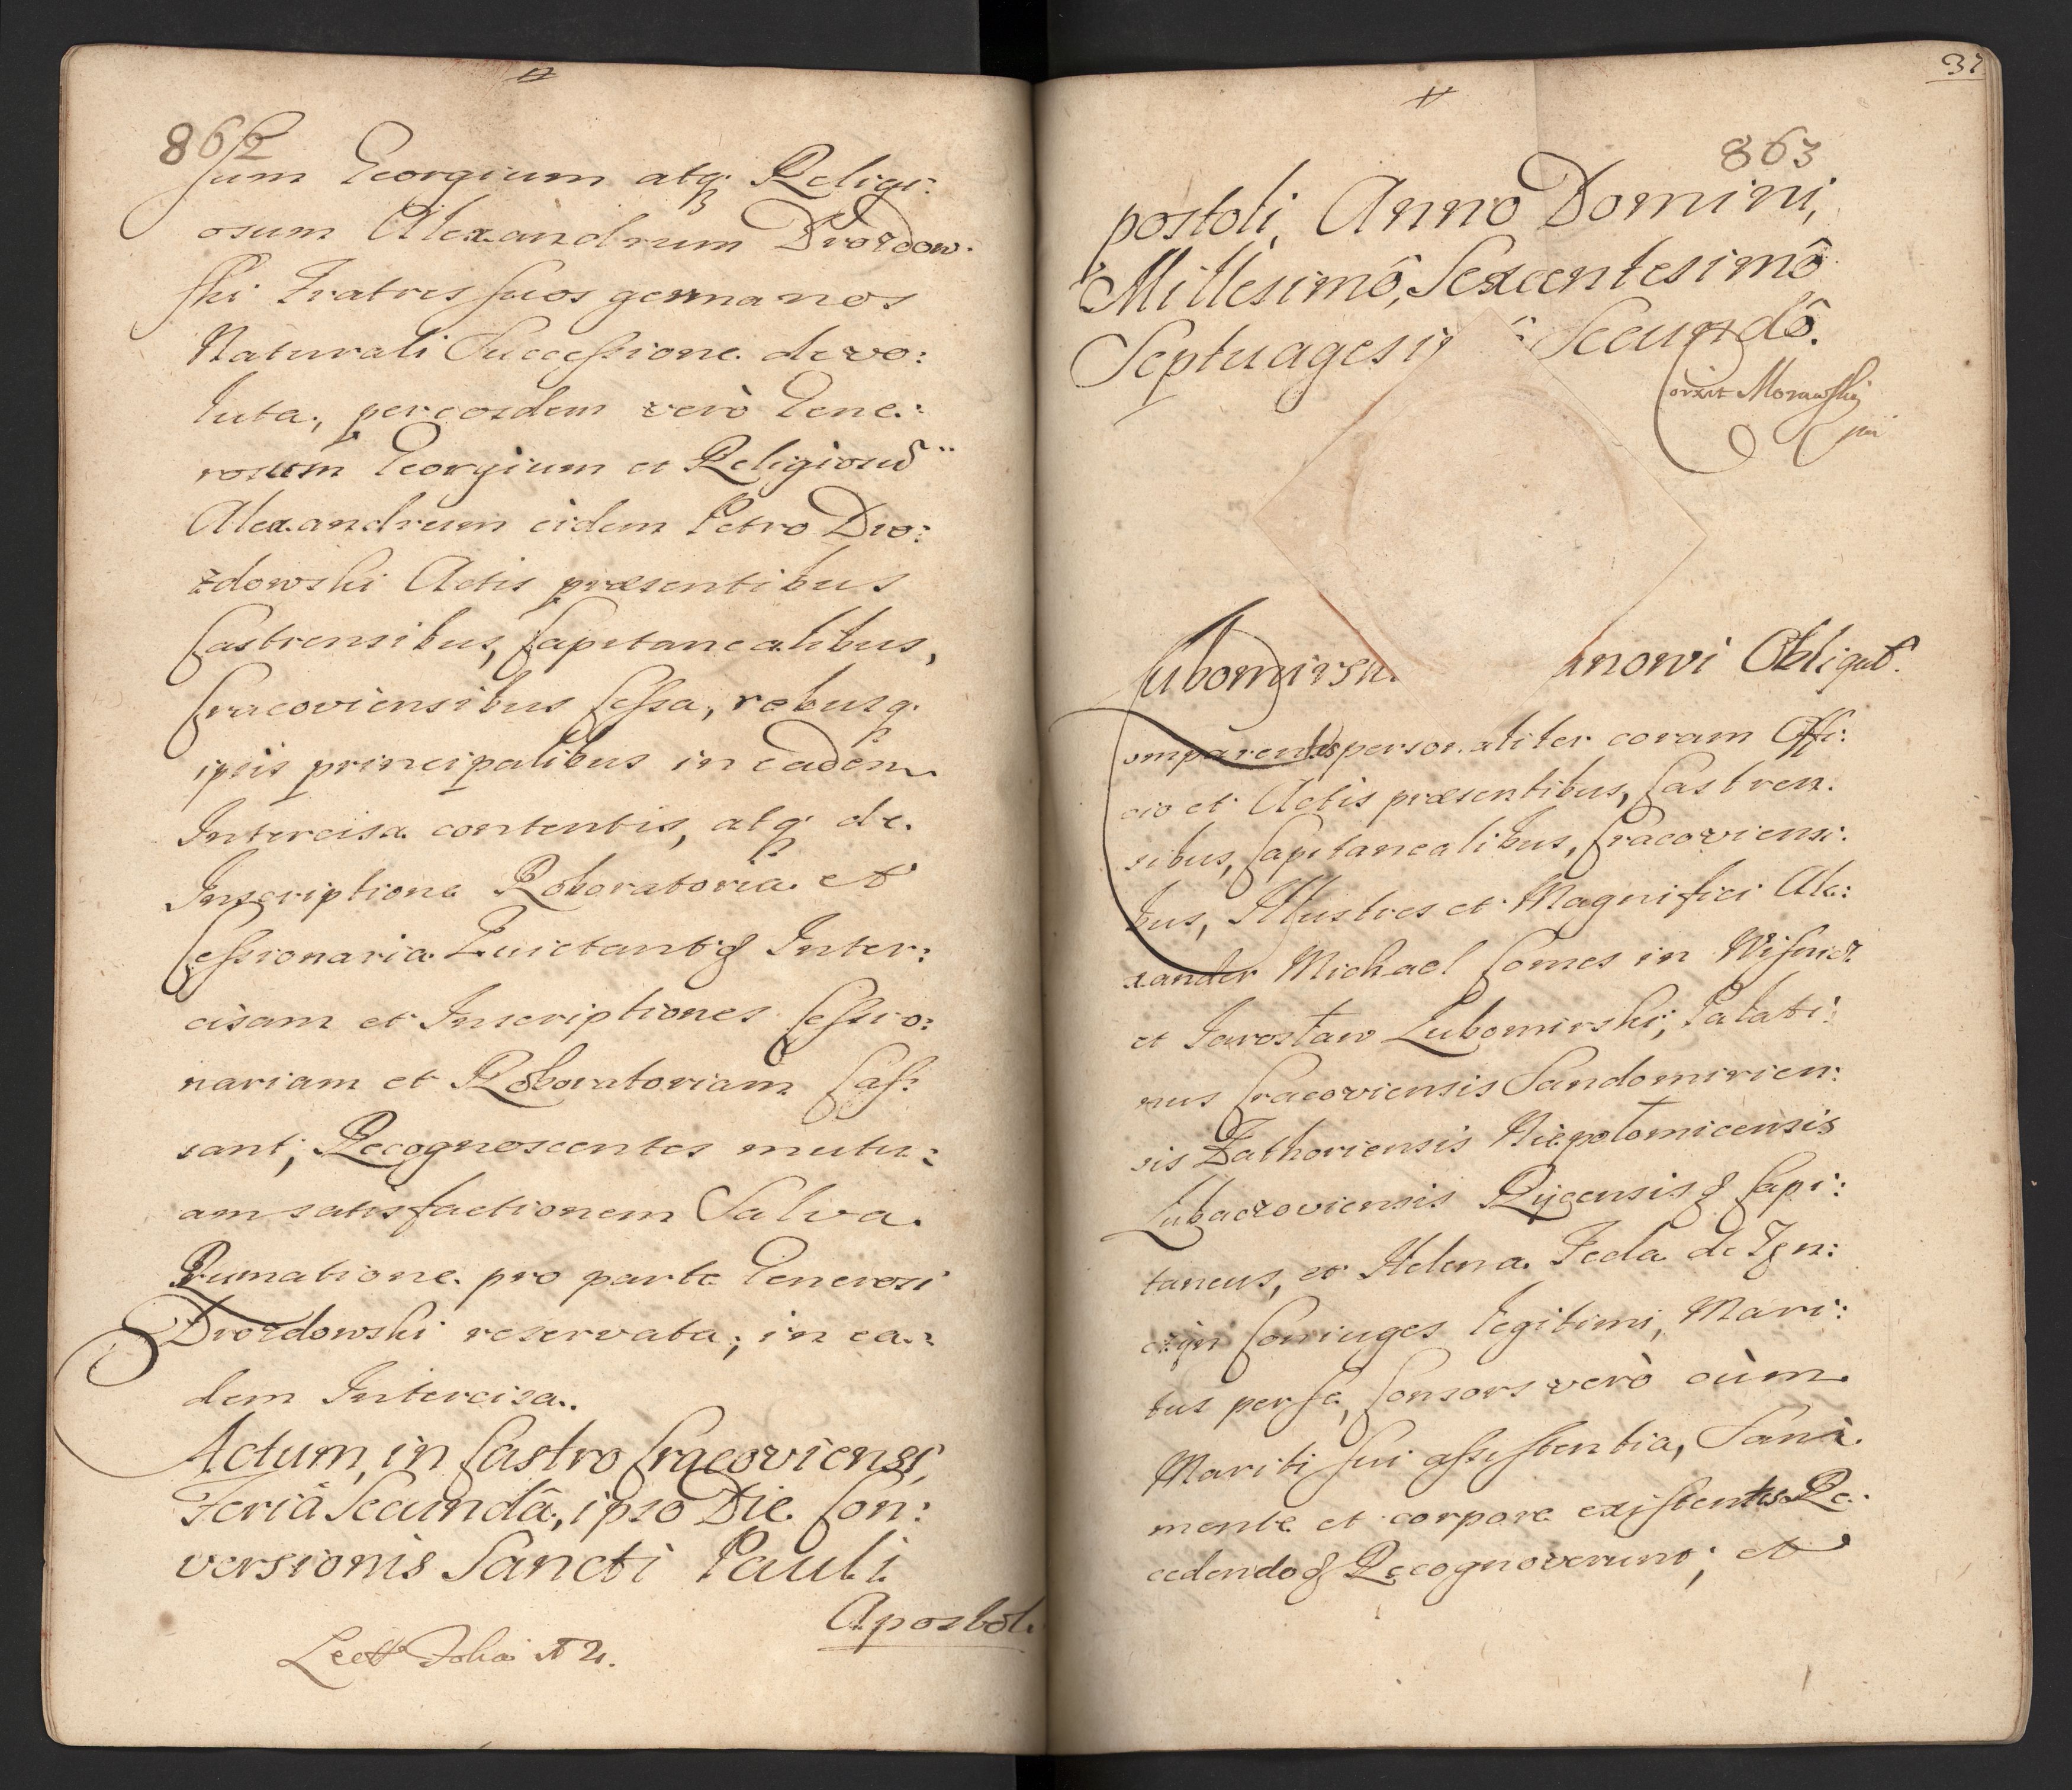 862
sum Georgium atq Religi:
osum Alexandrum Drozdow:
ski Fratres suos germanos
Naturali Successione devo:
luta, per eosdem verò Gene:
rosum Georgium et Religiosũ
Alexandrum eidem Petro Dro:
zdowski Actis præsentibus
Castrensibus, Capitanealibus,
Cracoviensibus Cessa, rebusq
ipsis principalibus in eadem
Intercisa contentis, atq de
Inscriptione Roboratoria et
Cessionaria Quietant& Inter:
cisam et Inscriptiones Cessio:
nariam et Roboratoriam Cas:
sant; Recognoscentes mutu:
am satisfactionem Salva
Rumatione pro parte Generosi
Drozdowski reservata; in ea:
dem Intercisa.
Actum, in Castro Cracoviensi,
Feriâ Secundâ, ipso Die Con:
versionis Sancti Pauli
Apostol.
Lect Folia N 2.
37
863
postoli, Anno Domini,
Millesimô, Sexcentesimô
Septuagesi Secundô.
Corxit Morawski
Lubomirsk nowi Obligat
Comparentes personaliter coram Offi:
cio et Actis præsentibus, Castren:
sibus, Capitanealibus, Cracoviensi:
bus, Illustres et Magnifici Ale:
xander Michael Comes in Wisnicz
et Jarosław Lubomirski, Palati:
nus Cracoviensis Sandomirien:
sis Zathoriensis Niepołomicensis
Lubaczoviensis Ryczensis& Capi:
taneus, et Helena Tecla de
Coniuges legitimi, Mari:
tus per se, Consors verò cùm
Mariti sui assistentia, Sani
mente et corpore existentes Re:
cedendo& Recognoverunt; et